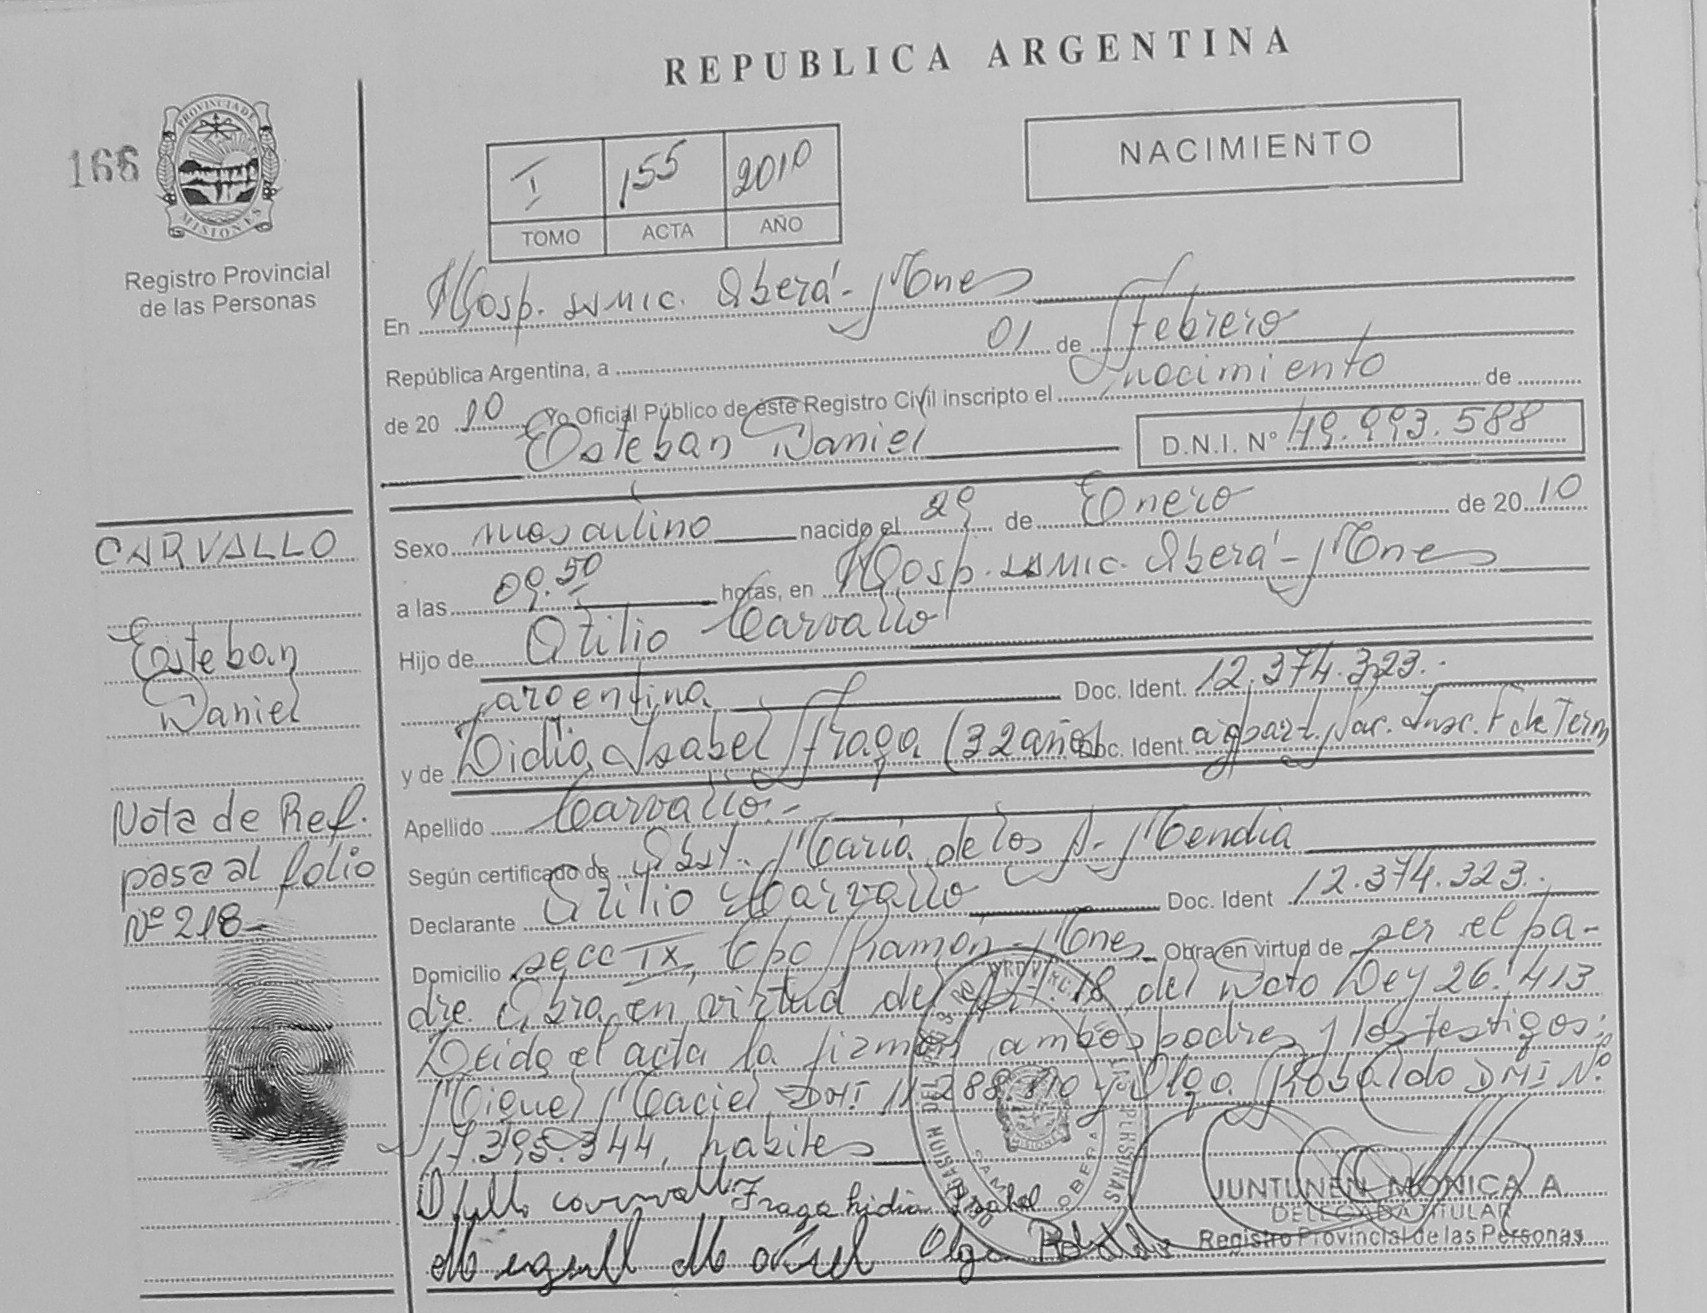 REPUBLICA ARGENTINA
166
PROVINCIA DE
MISIONES
Registro Provincial
de las Personas
I 155 2010
TOMO ACTA AÑO
NACIMIENTO
En Hosp. SAMIC. Oberá - Mnes
República Argentina, a 01 de Febrero
de 20 10 Yo Oficial Público de este Registro Civil inscripto el nacimiento de
Esteban Daniel D.N.I. Nº 49.993.588
Sexo masculino nacido el 29 de Enero de 20 10
a las 09.50 horas, en Hosp. SAMIC. Oberá - Mnes
Hijo de Otilio Carvallo
argentina Doc. Ident. 12.374.323.-
y de Lidia Isabel Fraga (32 años Doc. Ident.
Apellido Carvallo.-
Según certificado de Obst. María de los A. Mendia
Declarante Otilio Carvallo Doc. Ident 12.374.323.-
Domicilio secc IX, Cpo Ramón - Mnes Obra en virtud de ser el pa-
dre. Obra en virtud del Art. 18 del Dcto Ley 26.413
Leida el acta la firman ambos padres y los testigos:
Miguel Maciel DNI 11.288.810 y Olga Robaldo DNI Nº
17.395.344, habiles
Otilio Carvallo Fraga Lidia Isabel
Miguel Maciel Olga
JUNTUNEN MONICA A.
DELEGADA TITULAR
Registro Provincial de las Personas
CARVALLO
Esteban
Daniel
Nota de Ref.
pasa al folio
Nº 218-